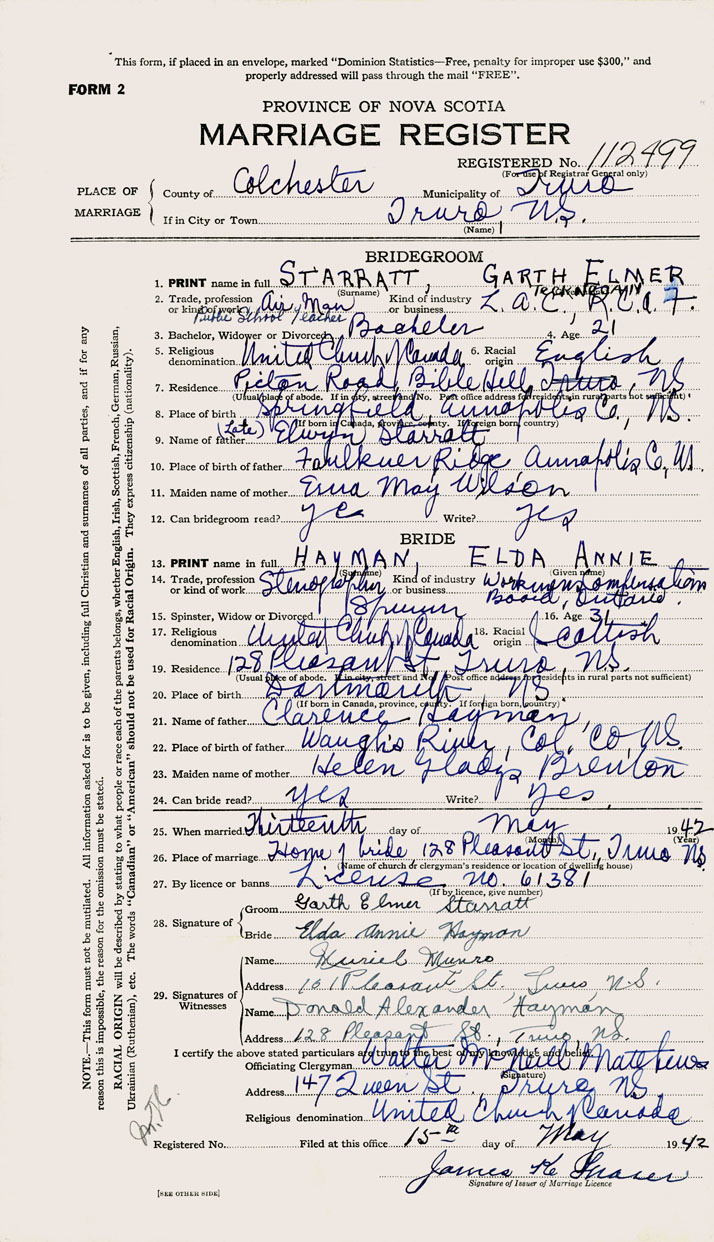 This form, if placed in an envelope, marked "Dominion Statistics—Free, penalty for improper use $300," and
properly addressed will pass through the mail "FREE".
FORM 2
PROVINCE OF NOVA SCOTIA
MARRIAGE REGISTER
REGISTERED No. 112499
(For use of Registrar General only)
PLACE OF MARRIAGE
County of Colchester Municipality of Truro
If in City or Town Truro, N.S.
(Name)
BRIDEGROOM
1. PRINT name in full STARRATT, GARTH ELMER
(Surname)
2. Trade, profession or kind of work Air Man Kind of industry or business L.A.C., R.C.A.F.
Public School Teacher
3. Bachelor, Widower or Divorced Bachelor 4. Age 21
5. Religious denomination United Church of Canada 6. Racial origin English
7. Residence Picton Road, Bible Hill, Truro, NS
(Usual place of abode. If in city, street and No. Post office address for residents in rural parts not sufficient)
8. Place of birth Springfield, Annapolis Co, NS.
(If born in Canada, province, county. If foreign born, country)
9. Name of father (Late) Elwyn Starratt
10. Place of birth of father Faulkner Ridge Annapolis Co, NS.
11. Maiden name of mother Erna May Wilson
12. Can bridegroom read? yes Write? yes
BRIDE
13. PRINT name in full HAYMAN, ELDA ANNIE
(Surname) (Given name)
14. Trade, profession or kind of work Stenographer Kind of industry or business Workmens Compensation Board, Ontario.
15. Spinster, Widow or Divorced Spinster 16. Age 31
17. Religious denomination United Church of Canada 18. Racial origin Scottish
19. Residence 128 Pleasant St, Truro, NS.
(Usual place of abode. If in city, street and No. Post office address for residents in rural parts not sufficient)
20. Place of birth Dartmouth, NS
(If born in Canada, province, county. If foreign born, country)
21. Name of father Clarence Hayman
22. Place of birth of father Waugh's River, Col. Co, NS.
23. Maiden name of mother Helen Gladys Brenton
24. Can bride read? yes Write? yes
25. When married Thirteenth day of May 1942
(Month) (Year)
26. Place of marriage Home of bride 128 Pleasant St., Truro NS
(Name of church or clergyman's residence or location of dwelling house)
27. By licence or banns License No. 61381
(If by licence, give number)
28. Signature of
Groom Garth Elmer Starratt
Bride Elda Annie Hayman
29. Signatures of Witnesses
Name Muriel Munro
Address 161 Pleasant St. Truro N.S.
Name Donald Alexander Hayman
Address 128 Pleasant St., Truro NS.
I certify the above stated particulars are true to the best of my knowledge and belief
Officiating Clergyman Walter McNeill Matthews
(Signature)
Address 147 Queen St. Truro NS
Religious denomination United Church of Canada
Registered No. Filed at this office 15th day of May 1942
James K Fraser
Signature of Issuer of Marriage Licence
[SEE OTHER SIDE]
NOTE.—This form must not be mutilated. All information asked for is to be given, including full Christian and surnames of all parties, and if for any
reason this is impossible, the reason for the omission must be stated.
RACIAL ORIGIN will be described by stating to what people or race each of the parents belongs, whether English, Irish, Scottish, French, German, Russian,
Ukrainian (Ruthenian), etc. The words "Canadian" or "American" should not be used for Racial Origin. They express citizenship (nationality).